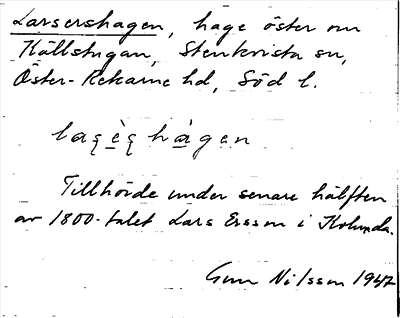 Larsershagen, hage öster om
Källstugan, Stenkvista sn,
Öster-Rekarne hd, Söd l.
laʂèʂhàgen
Tillhörde under senare hälften
av 1800-talet Lars Ersson i Kolunda.
Gun Nilsson 1947